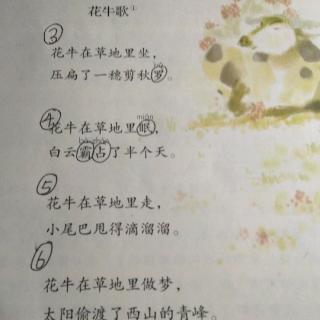 花牛歌①
③
花牛在草地里坐，
luó
压扁了一穗剪秋罗。
④
mián
花牛在草地里眠，
bà zhàn
白云霸占了半个天。
⑤
花牛在草地里走，
小尾巴甩得滴溜溜。
⑥
花牛在草地里做梦，
太阳偷渡了西山的青峰。